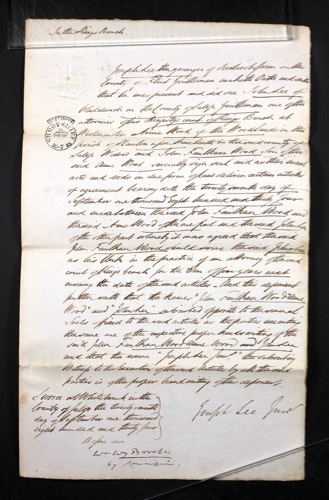 In the Kings Bench
Joseph Lee the younger of Redbrook farm in the
County of Flint Gentleman maketh Oath and saith
that he was present and did see John Lee of
Whitchurch in the County of Salop gentleman one of the
attornies of his Majesty's Court of Kings Bench at
Westminster Anne Wood of the Woodlands in the
parish of near Whitchurch in the said county of
Salop Widow and John Faulkner Wood Son of the
said Anne Wood severally sign seal and as their several
acts and deeds in due form of law deliver certain articles
of agreement bearing date the twenty ninth day of
September one thousand eight hundred and thirty four
and made between the said John Faulkner Wood and
the said Ann Wood of the one part and the said John Lee
of the other part whereby it was agreed that the said
John Faulkner Wood should serve the said John Lee
as his Clerk in the practice of an attorney of the said
court of kings bench for the term of five years next
ensuing the date of the said articles And this deponent
further saith that the names "John Faulkner Wood" "Anne
Wood" and "John Lee" subscribed opposite to the several
Seals affixed to the said articles as the parties executing
the same are of the respective proper handwriting of the
said John Faulkner Wood Anne Wood and John Lee
and that the name "Joseph Lee Junr" the subscribing
Witness to the execution of the said Articles by all the said
parties is of the proper handwriting of this deponent
Sworn at Whitchurch in the
County of Salop the twenty ninth
day of September one thousand
eight hundred and thirty four
Before me
Joseph Lee Junr
Wm Wy Brookes
by commission